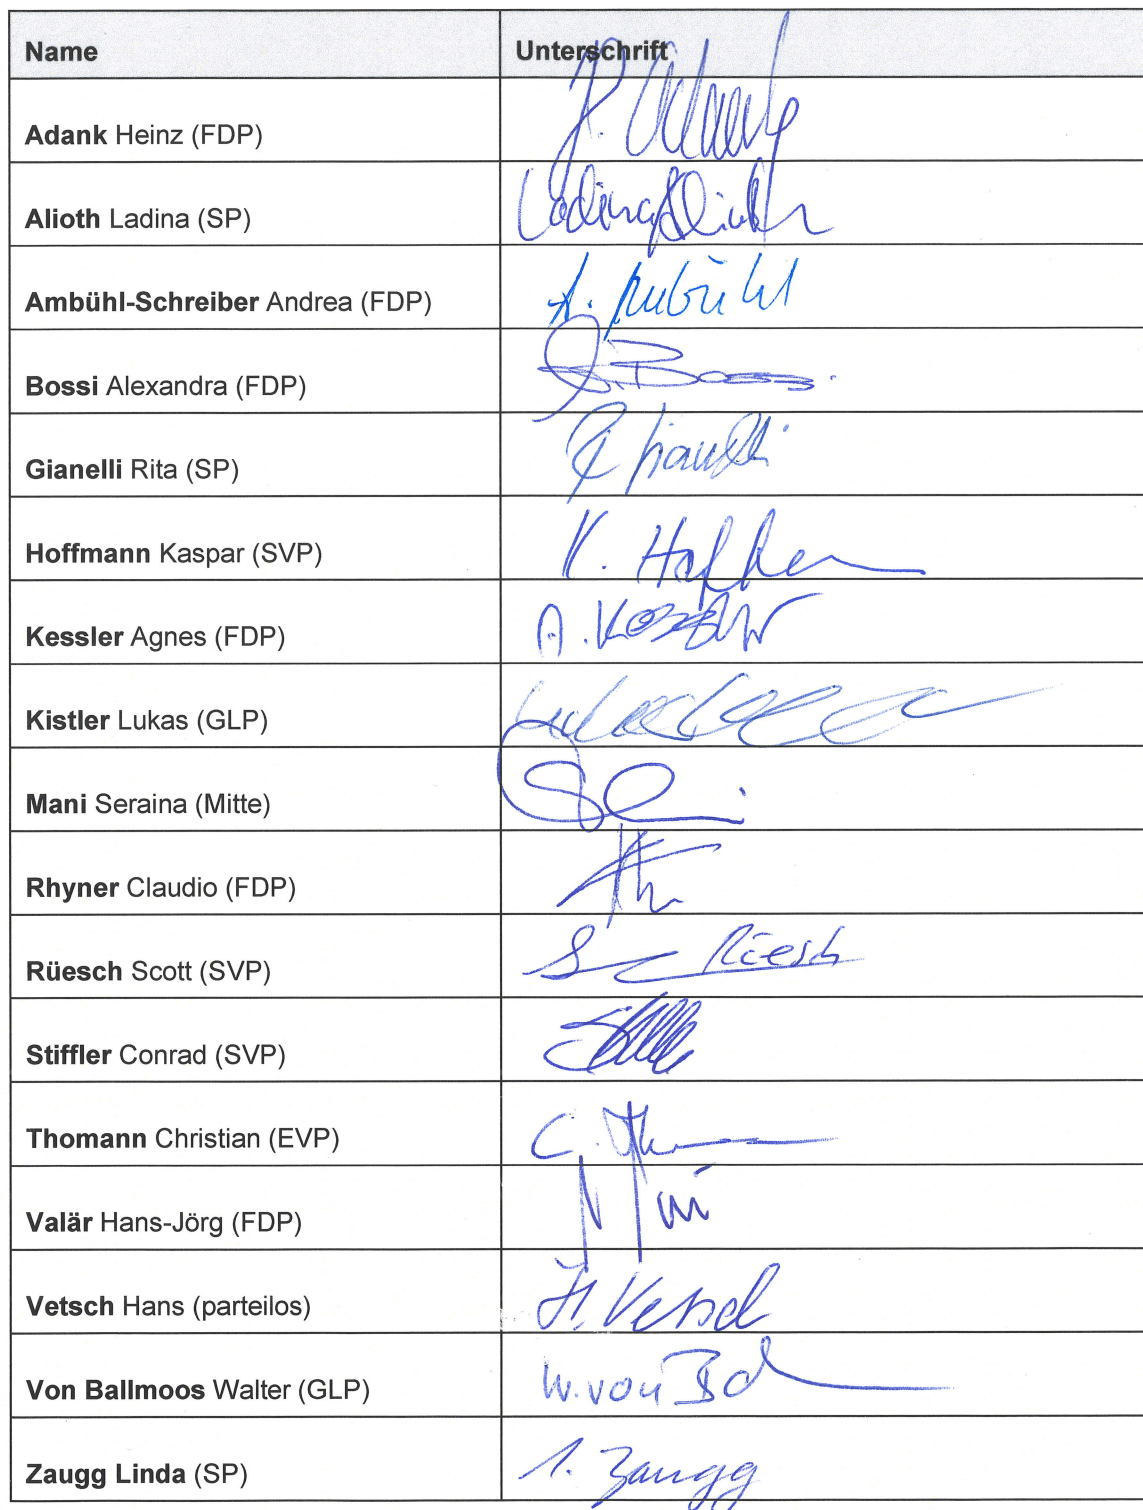 Name Unterschrift
Adank Heinz (FDP)
Alioth Ladina (SP) Ladina Alioth
Ambühl-Schreiber Andrea (FDP) A. Ambühl
Bossi Alexandra (FDP) A. Bossi
Gianelli Rita (SP) R Gianelli
Hoffmann Kaspar (SVP) K. Hoffmann
Kessler Agnes (FDP) A. Kessler
Kistler Lukas (GLP)
Mani Seraina (Mitte)
Rhyner Claudio (FDP)
Rüesch Scott (SVP) S Rüesch
Stiffler Conrad (SVP)
Thomann Christian (EVP) C. Th
Valär Hans-Jörg (FDP)
Vetsch Hans (parteilos) H. Vetsch
Von Ballmoos Walter (GLP) W. von B
Zaugg Linda (SP) L. Zaugg